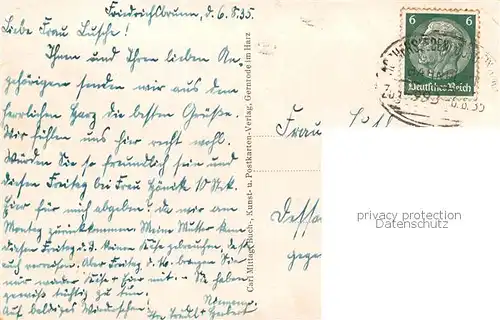 Friedrichsbrunn, d. 6. 8. 35.
Liebe Frau Lusche!
Ihnen und Ihren lieben An-
gehörigen senden wir aus dem
herrlichen Harz die besten Grüße.
Wir fühlen uns hier recht wohl.
Würden Sie so freundlich sein und
diesen Freitag bei Frau 10 Stck.
für mich abgeben? da wir am
Montag zurückkommen. Meine Mutter kann
diesen Freitag d. 9. keine gebrauchen, da
auch verreisen. Aber Freitag d. 16. bringen Sie
mir wieder + mit. - Sie haben
gewiß tüchtig zu tun.
Auf baldiges Wiedersehen!
Ihre Trudl + Herbert
Carl Mittag, Buch-, Kunst- u. Postkarten-Verlag, Gernrode im Harz
6 6
Deutsches Reich
Frau
Dessau
privacy protection
watermark